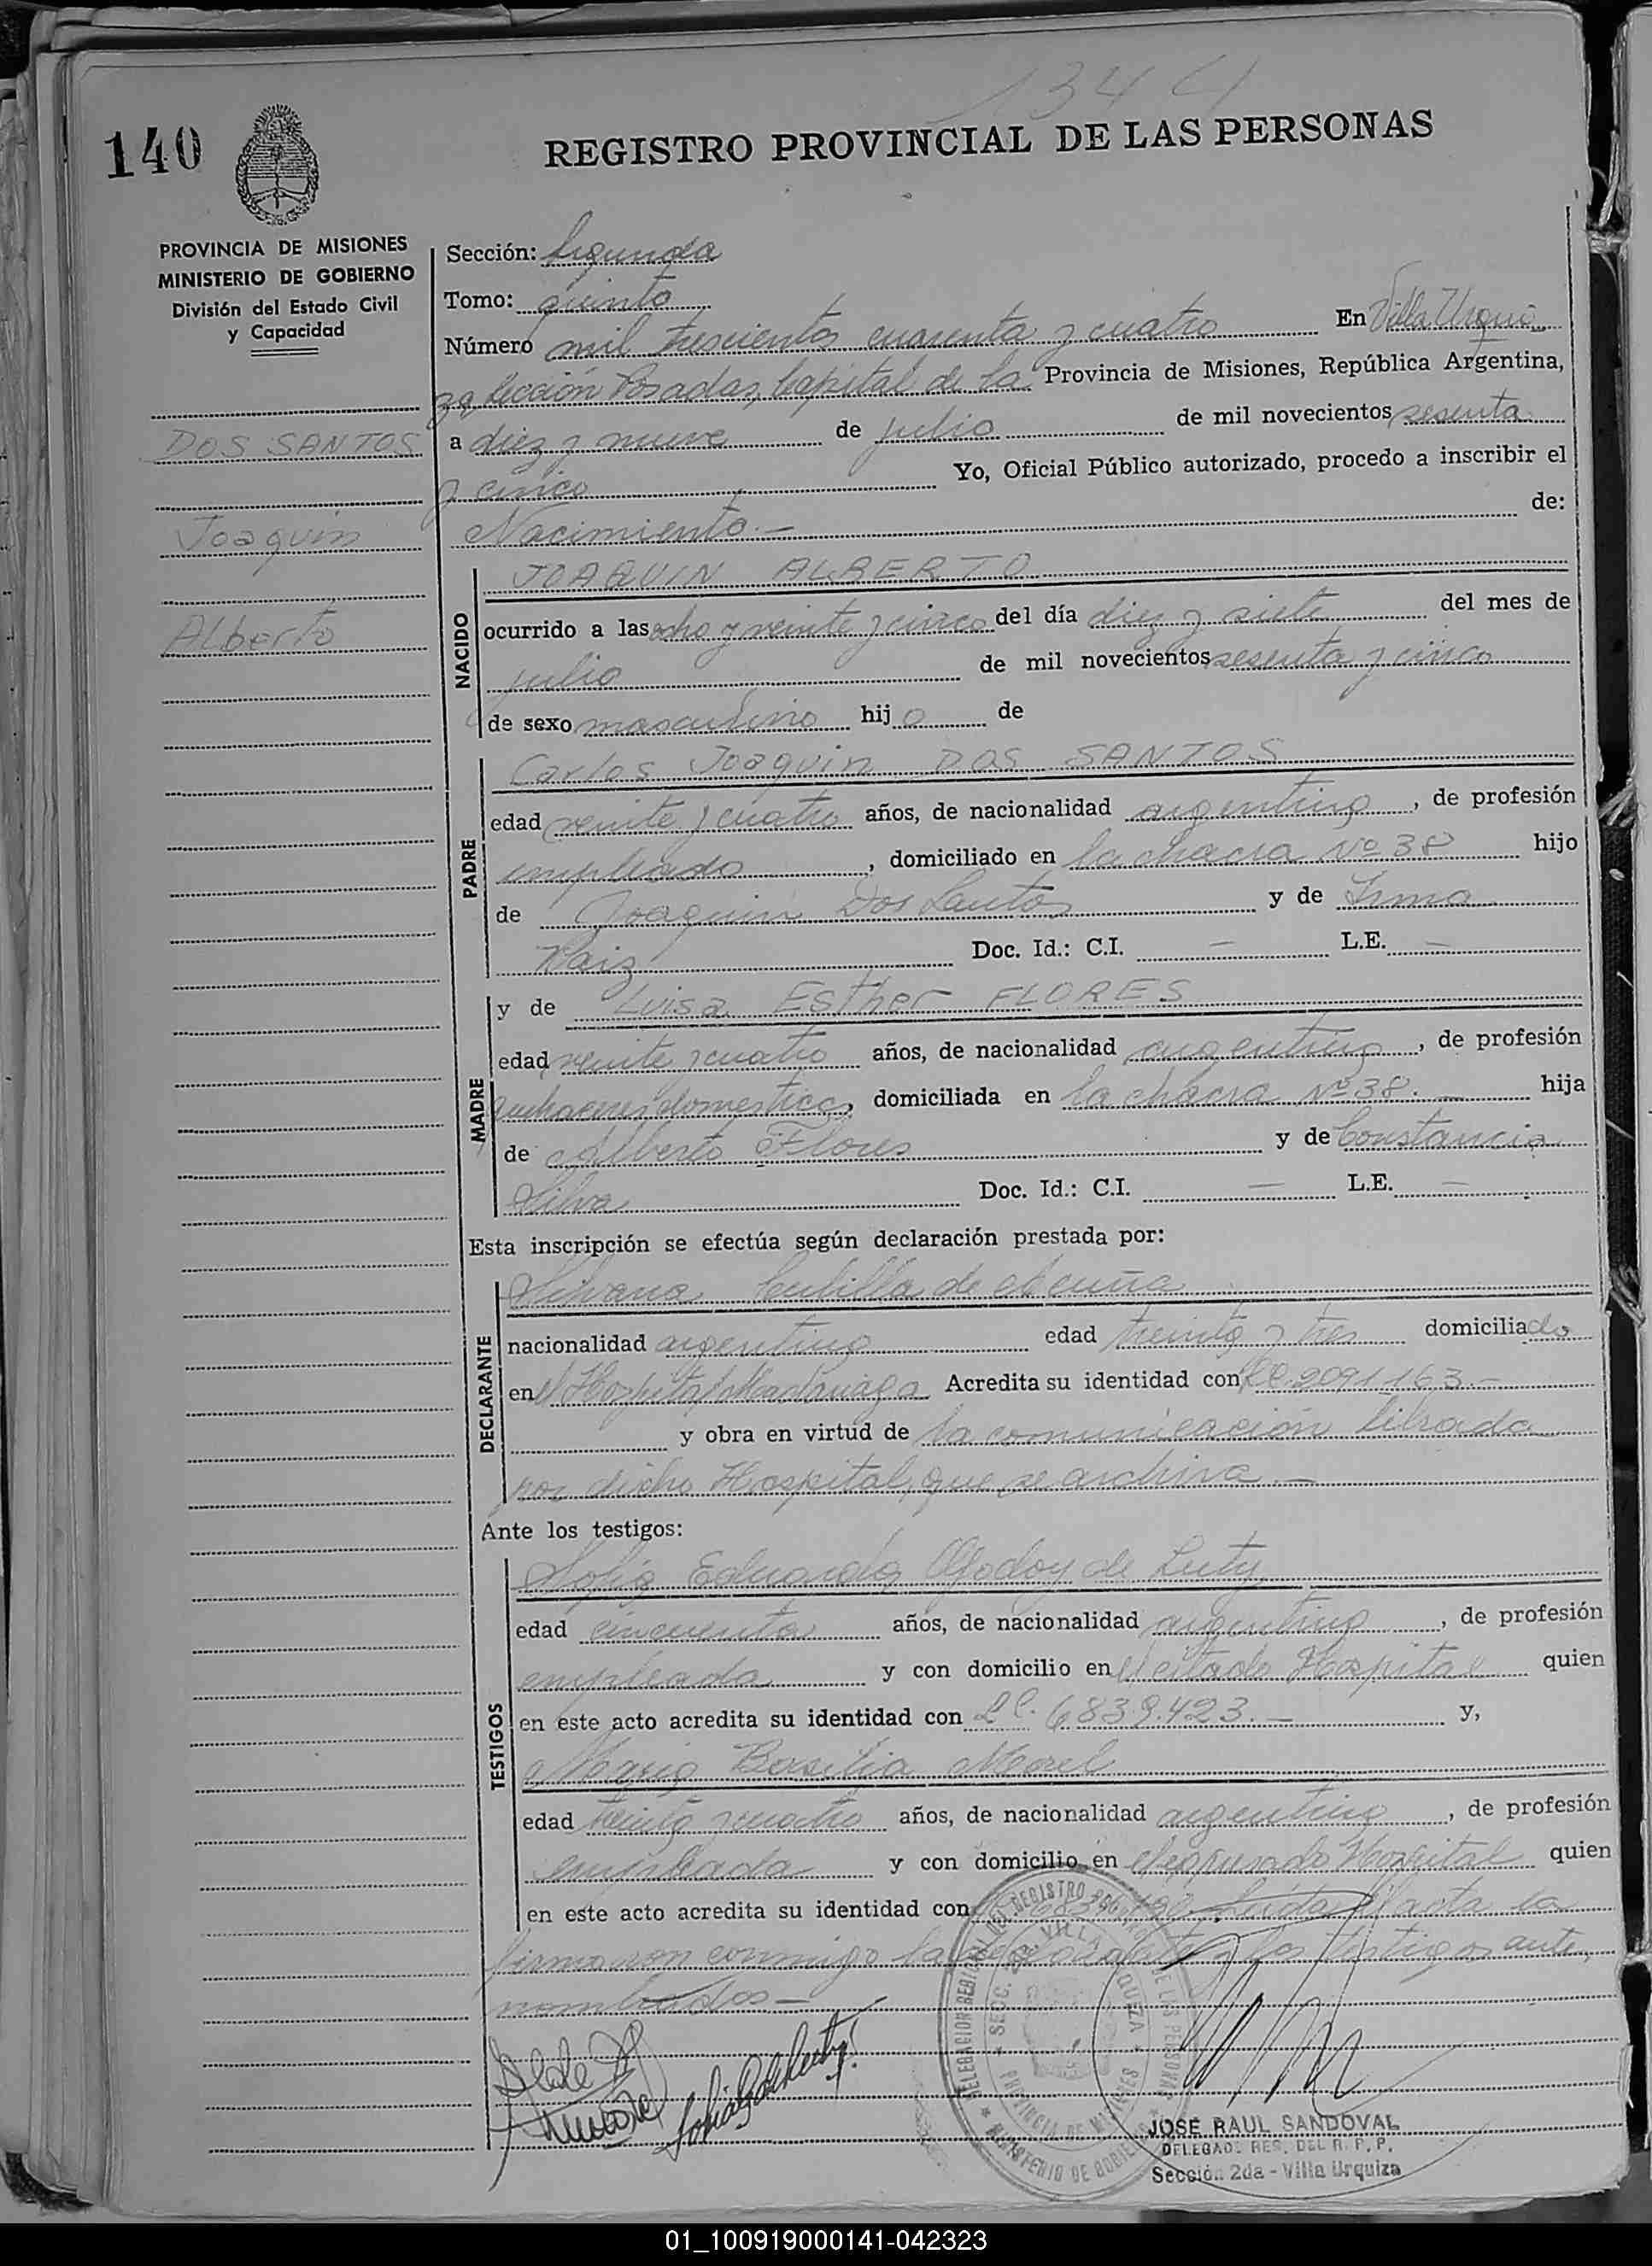 1344
140
REGISTRO PROVINCIAL DE LAS PERSONAS
PROVINCIA DE MISIONES
MINISTERIO DE GOBIERNO
División del Estado Civil
y Capacidad
DOS SANTOS
Joaquin
Alberto
Sección: Segunda
Tomo: quinto
Número mil trescientos cuarenta y cuatro En Villa Urqui
za Sección Posadas, Capital de la Provincia de Misiones, República Argentina,
a diez y nueve de julio de mil novecientos sesenta
y cinco Yo, Oficial Público autorizado, procedo a inscribir el
Nacimiento.- de:
NACIDO
JOAQUIN ALBERTO
ocurrido a las ocho y veinte y cinco del día diez y siete del mes de
julio de mil novecientos sesenta y cinco
de sexo masculino hijo de
PADRE
Carlos Joaquin DOS SANTOS
edad veinte y cuatro años, de nacionalidad argentino, de profesión
empleado, domiciliado en la chacra Nº 38 hijo
de Joaquin Dos Santos y de Irma
Doc. Id.: C.I. — L.E. —
MADRE
y de Luisa Esther FLORES
edad veinte y cuatro años, de nacionalidad argentina, de profesión
quehaceres domesticos, domiciliada en la chacra Nº 38. — hija
de Alberto Flores y de Constancia
Silva Doc. Id.: C.I. — L.E. —
Esta inscripción se efectúa según declaración prestada por:
DECLARANTE
Silvana de
nacionalidad argentina edad treinta y tres domiciliada
en el Hospital Madariaga Acredita su identidad con LC. 2091163.-
y obra en virtud de la comunicación librada
por dicho Hospital, que se archiva.—
Ante los testigos:
TESTIGOS
Sofia Eduarda Godoy de Luty
edad cincuenta años, de nacionalidad argentina, de profesión
empleada y con domicilio en el citado Hospital quien
en este acto acredita su identidad con LC. 6839.423.— y,
Maria Basilia Morel
edad treinta y cuatro años, de nacionalidad argentina, de profesión
empleada y con domicilio en el expresado Hospital quien
en este acto acredita su identidad con Leida el acta la
firmaron conmigo la declarante y los testigos ante
nombrados—
JOSE RAUL SANDOVAL
DELEGADO REG. DEL R. P. P.
Sección 2da - Villa Urquiza
01_100919000141-042323